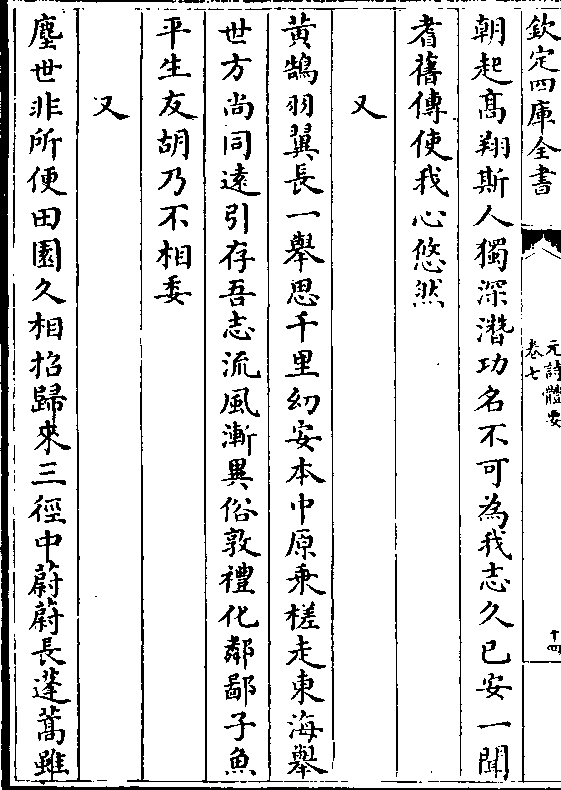 欽定四庫全書
元詩體要
卷七
十四
朝起髙翔斯人獨深潛功名不可為我志久已安一聞
耆舊傳使我心悠然
又
黄鵠羽翼長一舉思千里幼安本中原乘槎走東海舉
世方尚同逺引存吾志流風漸異俗敦禮化鄰鄙子魚
平生友胡乃不相委
又
塵世非所便田園久相招歸來三徑中蔚蔚長蓬蒿雖